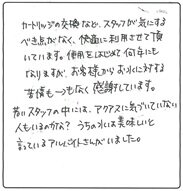 カートリッジの交換など、スタッフが気にする
べき点がなく、快適に利用させて頂
いています。使用をはじめて何年にも
なりますが、お客様からお水に対する
苦情も一つもなく感謝しています。
若いスタッフの中には、アクアスに気づいていない
人もいるかな? うちの水は美味しいと
言っているアルバイトさんがいました。